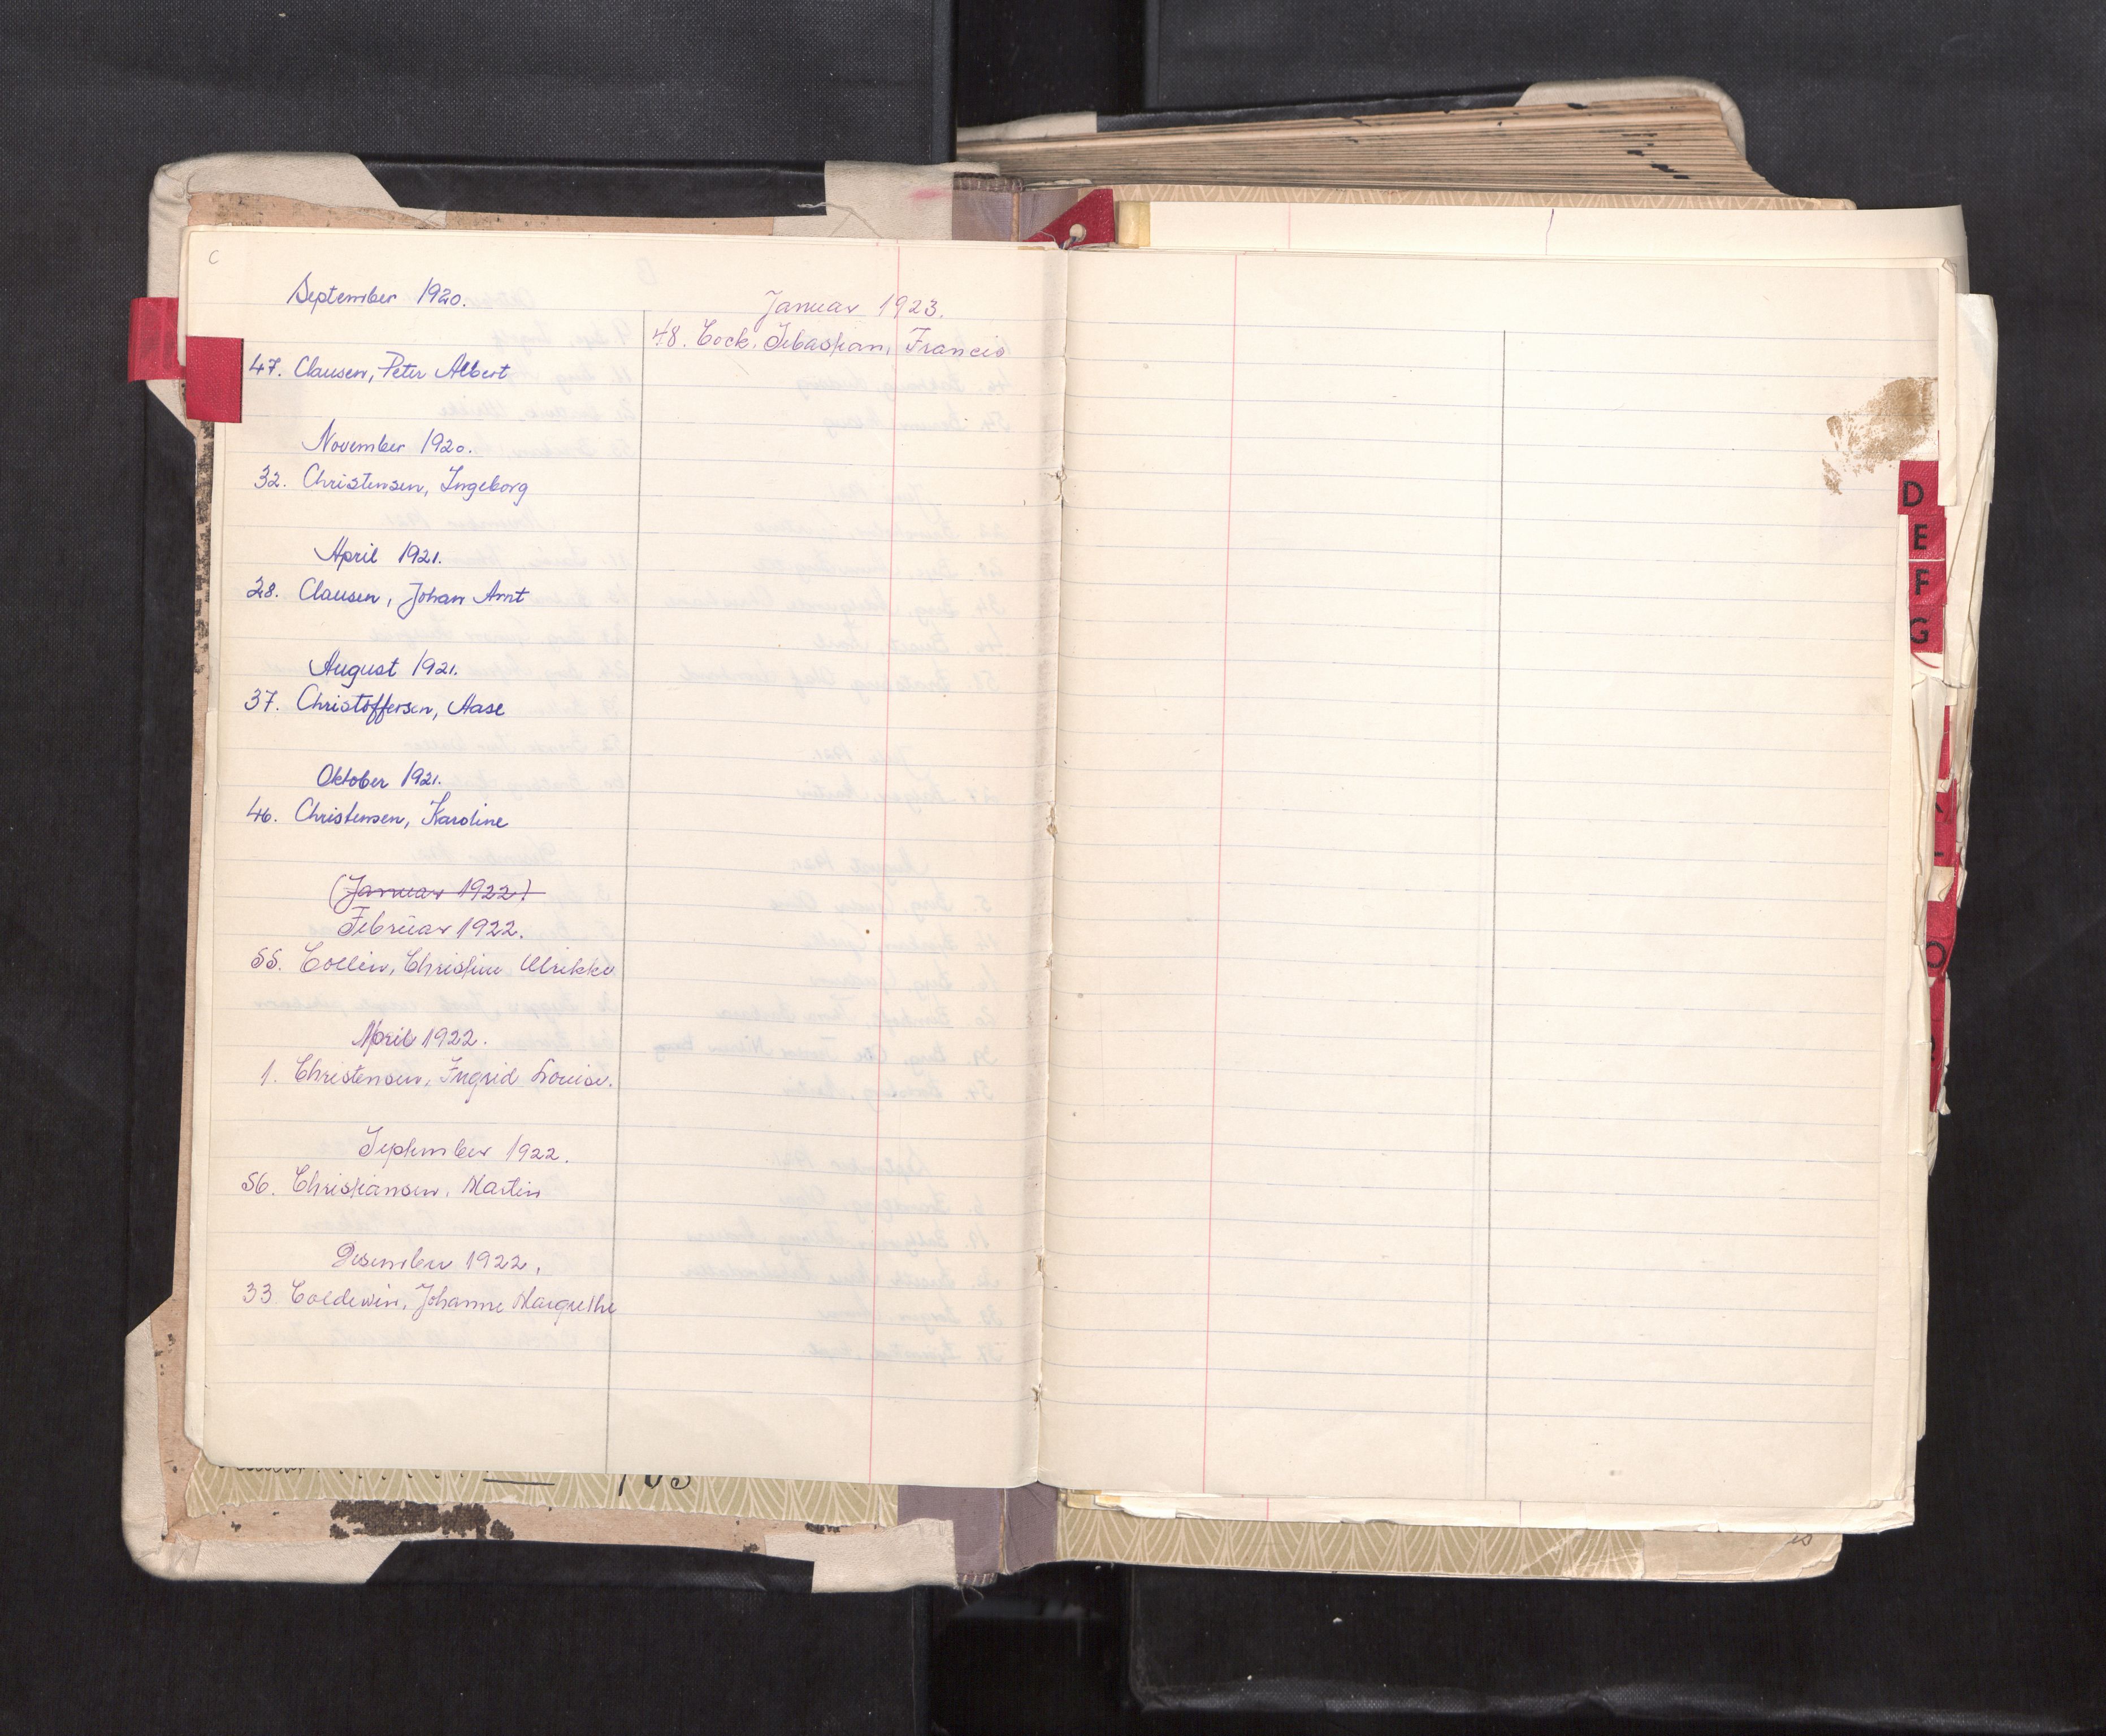 C
September 1920.
47. Clausen, Peter Albert
November 1920.
32. Christensen, Ingeborg
April 1921.
28. Clausen, Johan Arnt
August 1921.
37. Christoffersen, Aase
Oktober 1921.
46. Christensen, Karoline
(Januar 1922)
Februar 1922.
55. Collin, Christine Ulrikke
April 1922.
1. Christensen, Ingrid Louise.
September 1922.
56. Christiansen, Martin
Desember 1922.
33 Coldevin, Johanne Margrethe
Januar 1923.
48. Cock, Sebastian, Francis
D
E
F
G
O